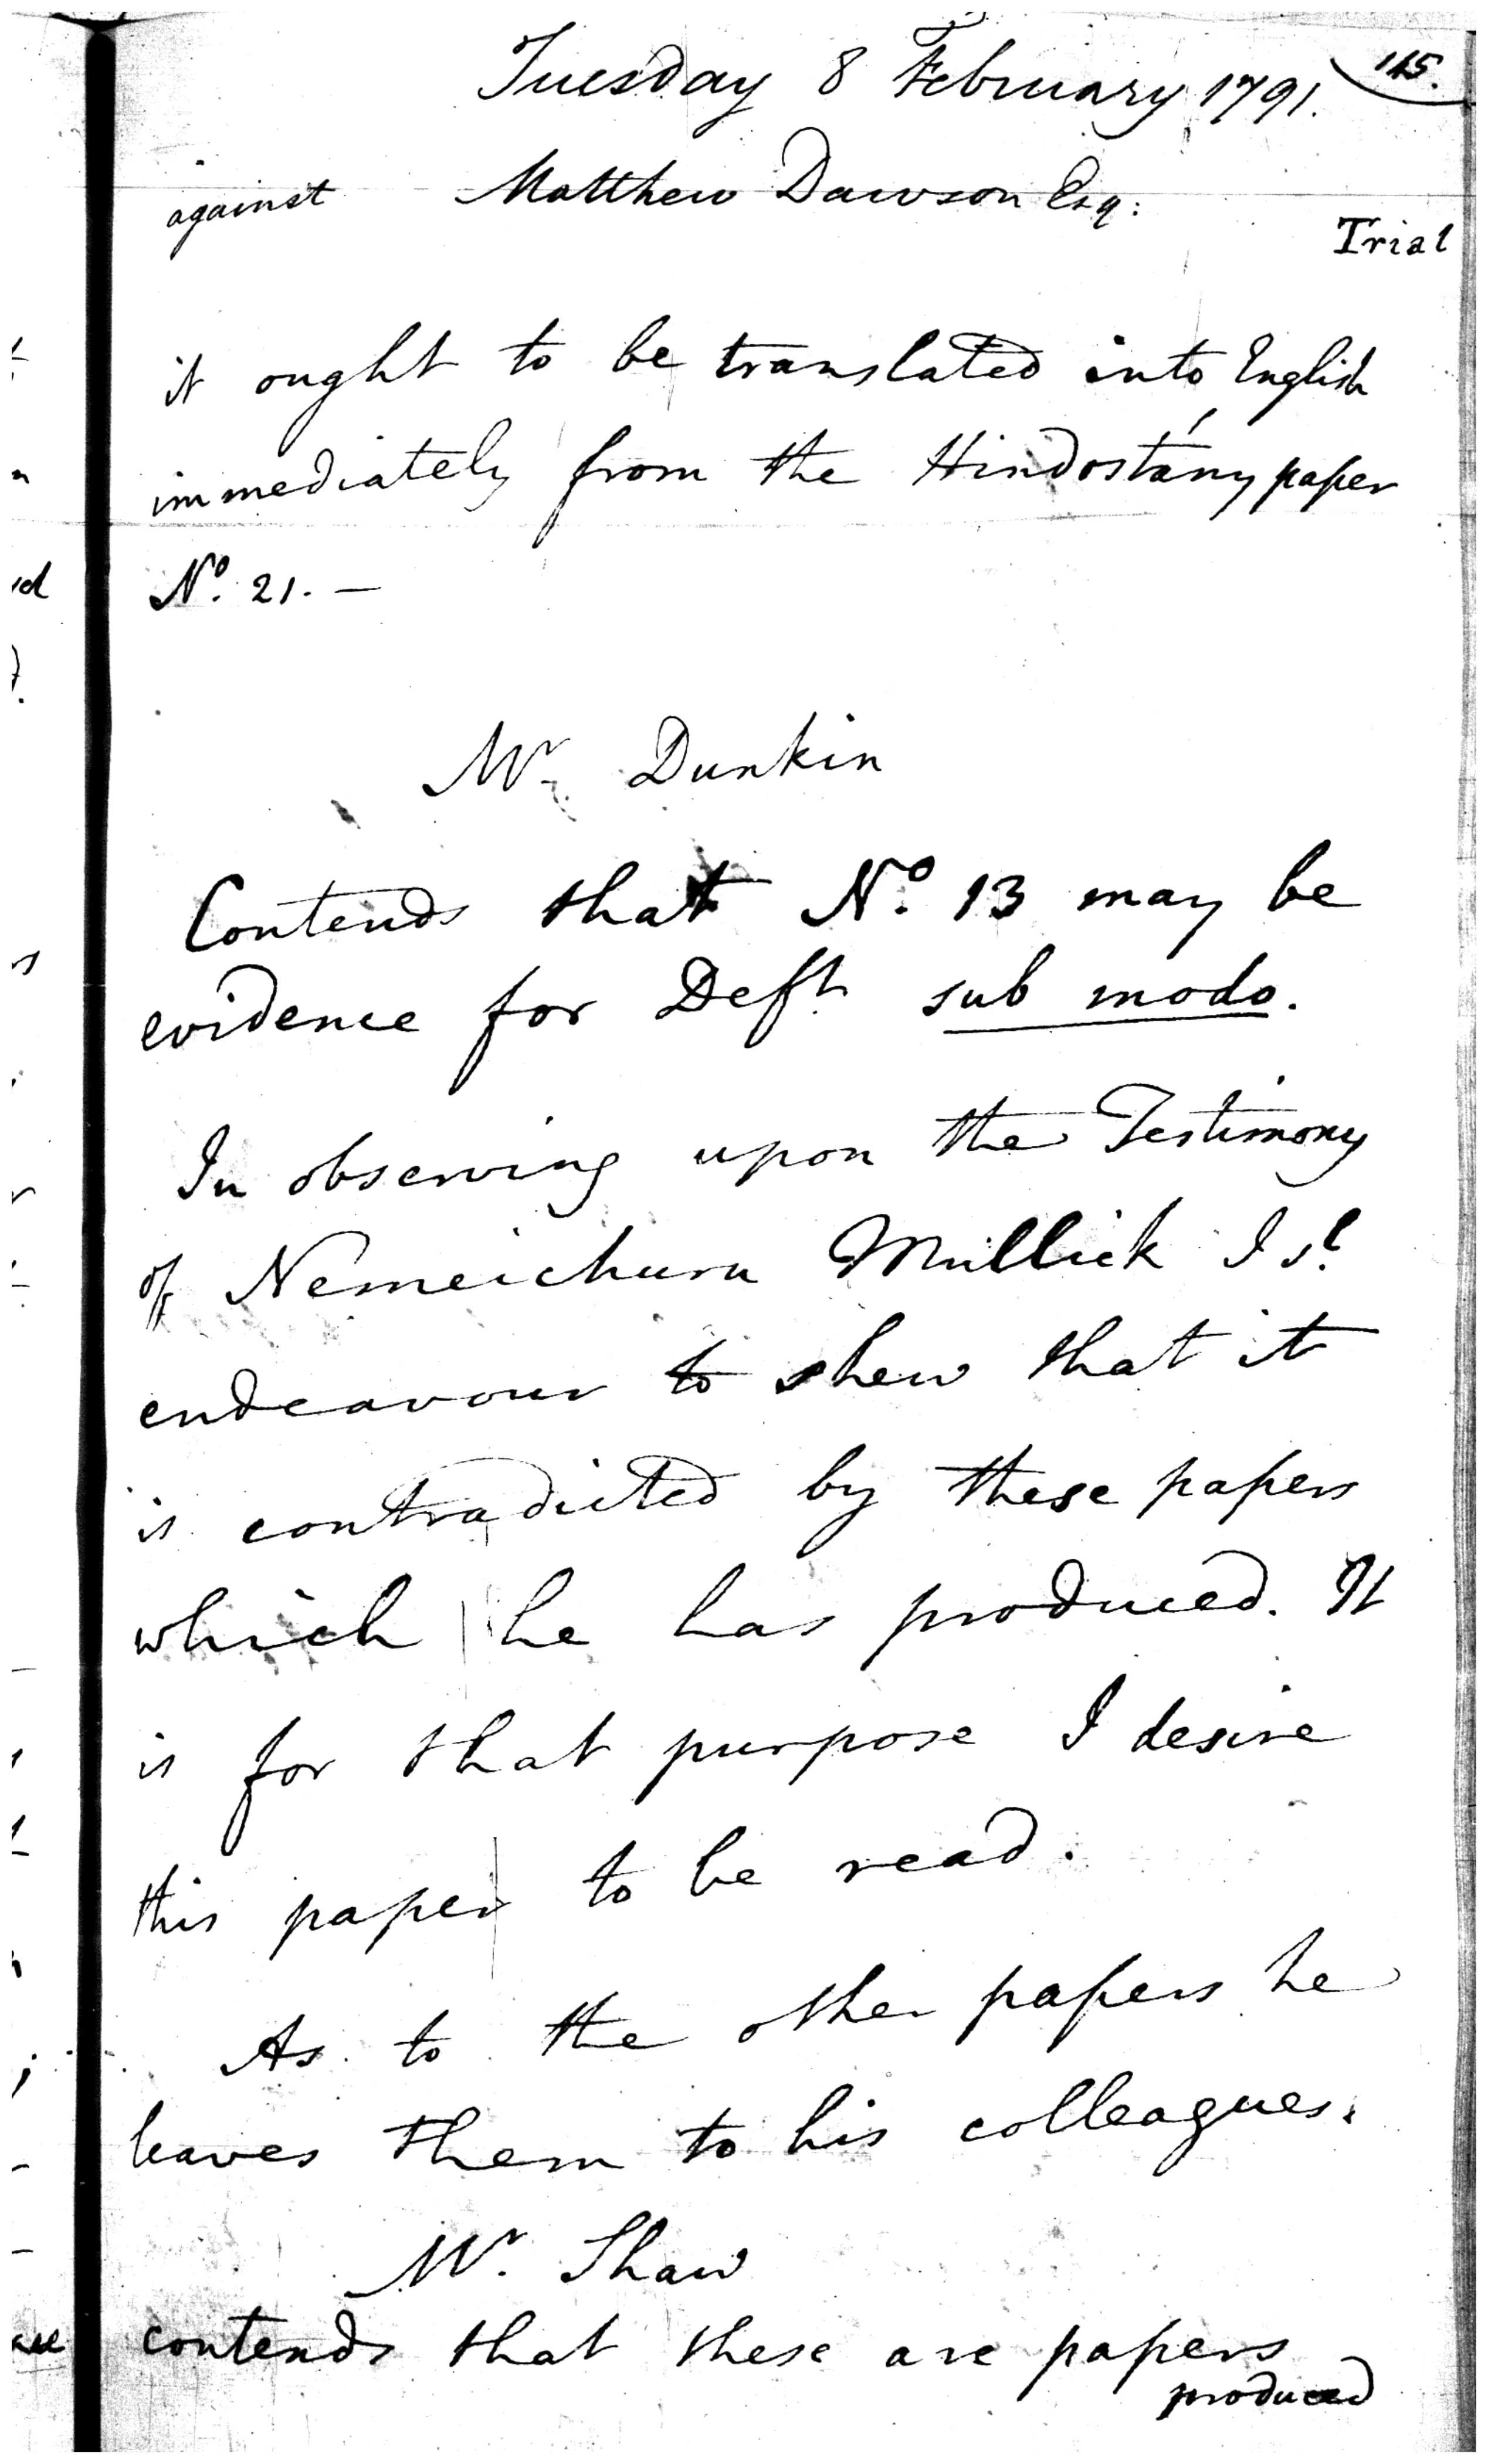 Tuesday 8 February 1791.
115.
against Matthew Dawson Esq:
Trial
it ought to be translated into English
immediately from the Hindostány paper
No. 21. —
Mr. Dunkin
Contends that No. 13 may be
evidence for Deft. sub modo.
In observing upon the Testimony
of Nemeichurn Mullick I sl.
endeavour to shew that it
is contradicted by these papers
which he has produced. It
is for that purpose I desire
this paper to be read.
As to the other papers he
leaves them to his colleagues.
Mr. Shaw
contends that these are papers
produced